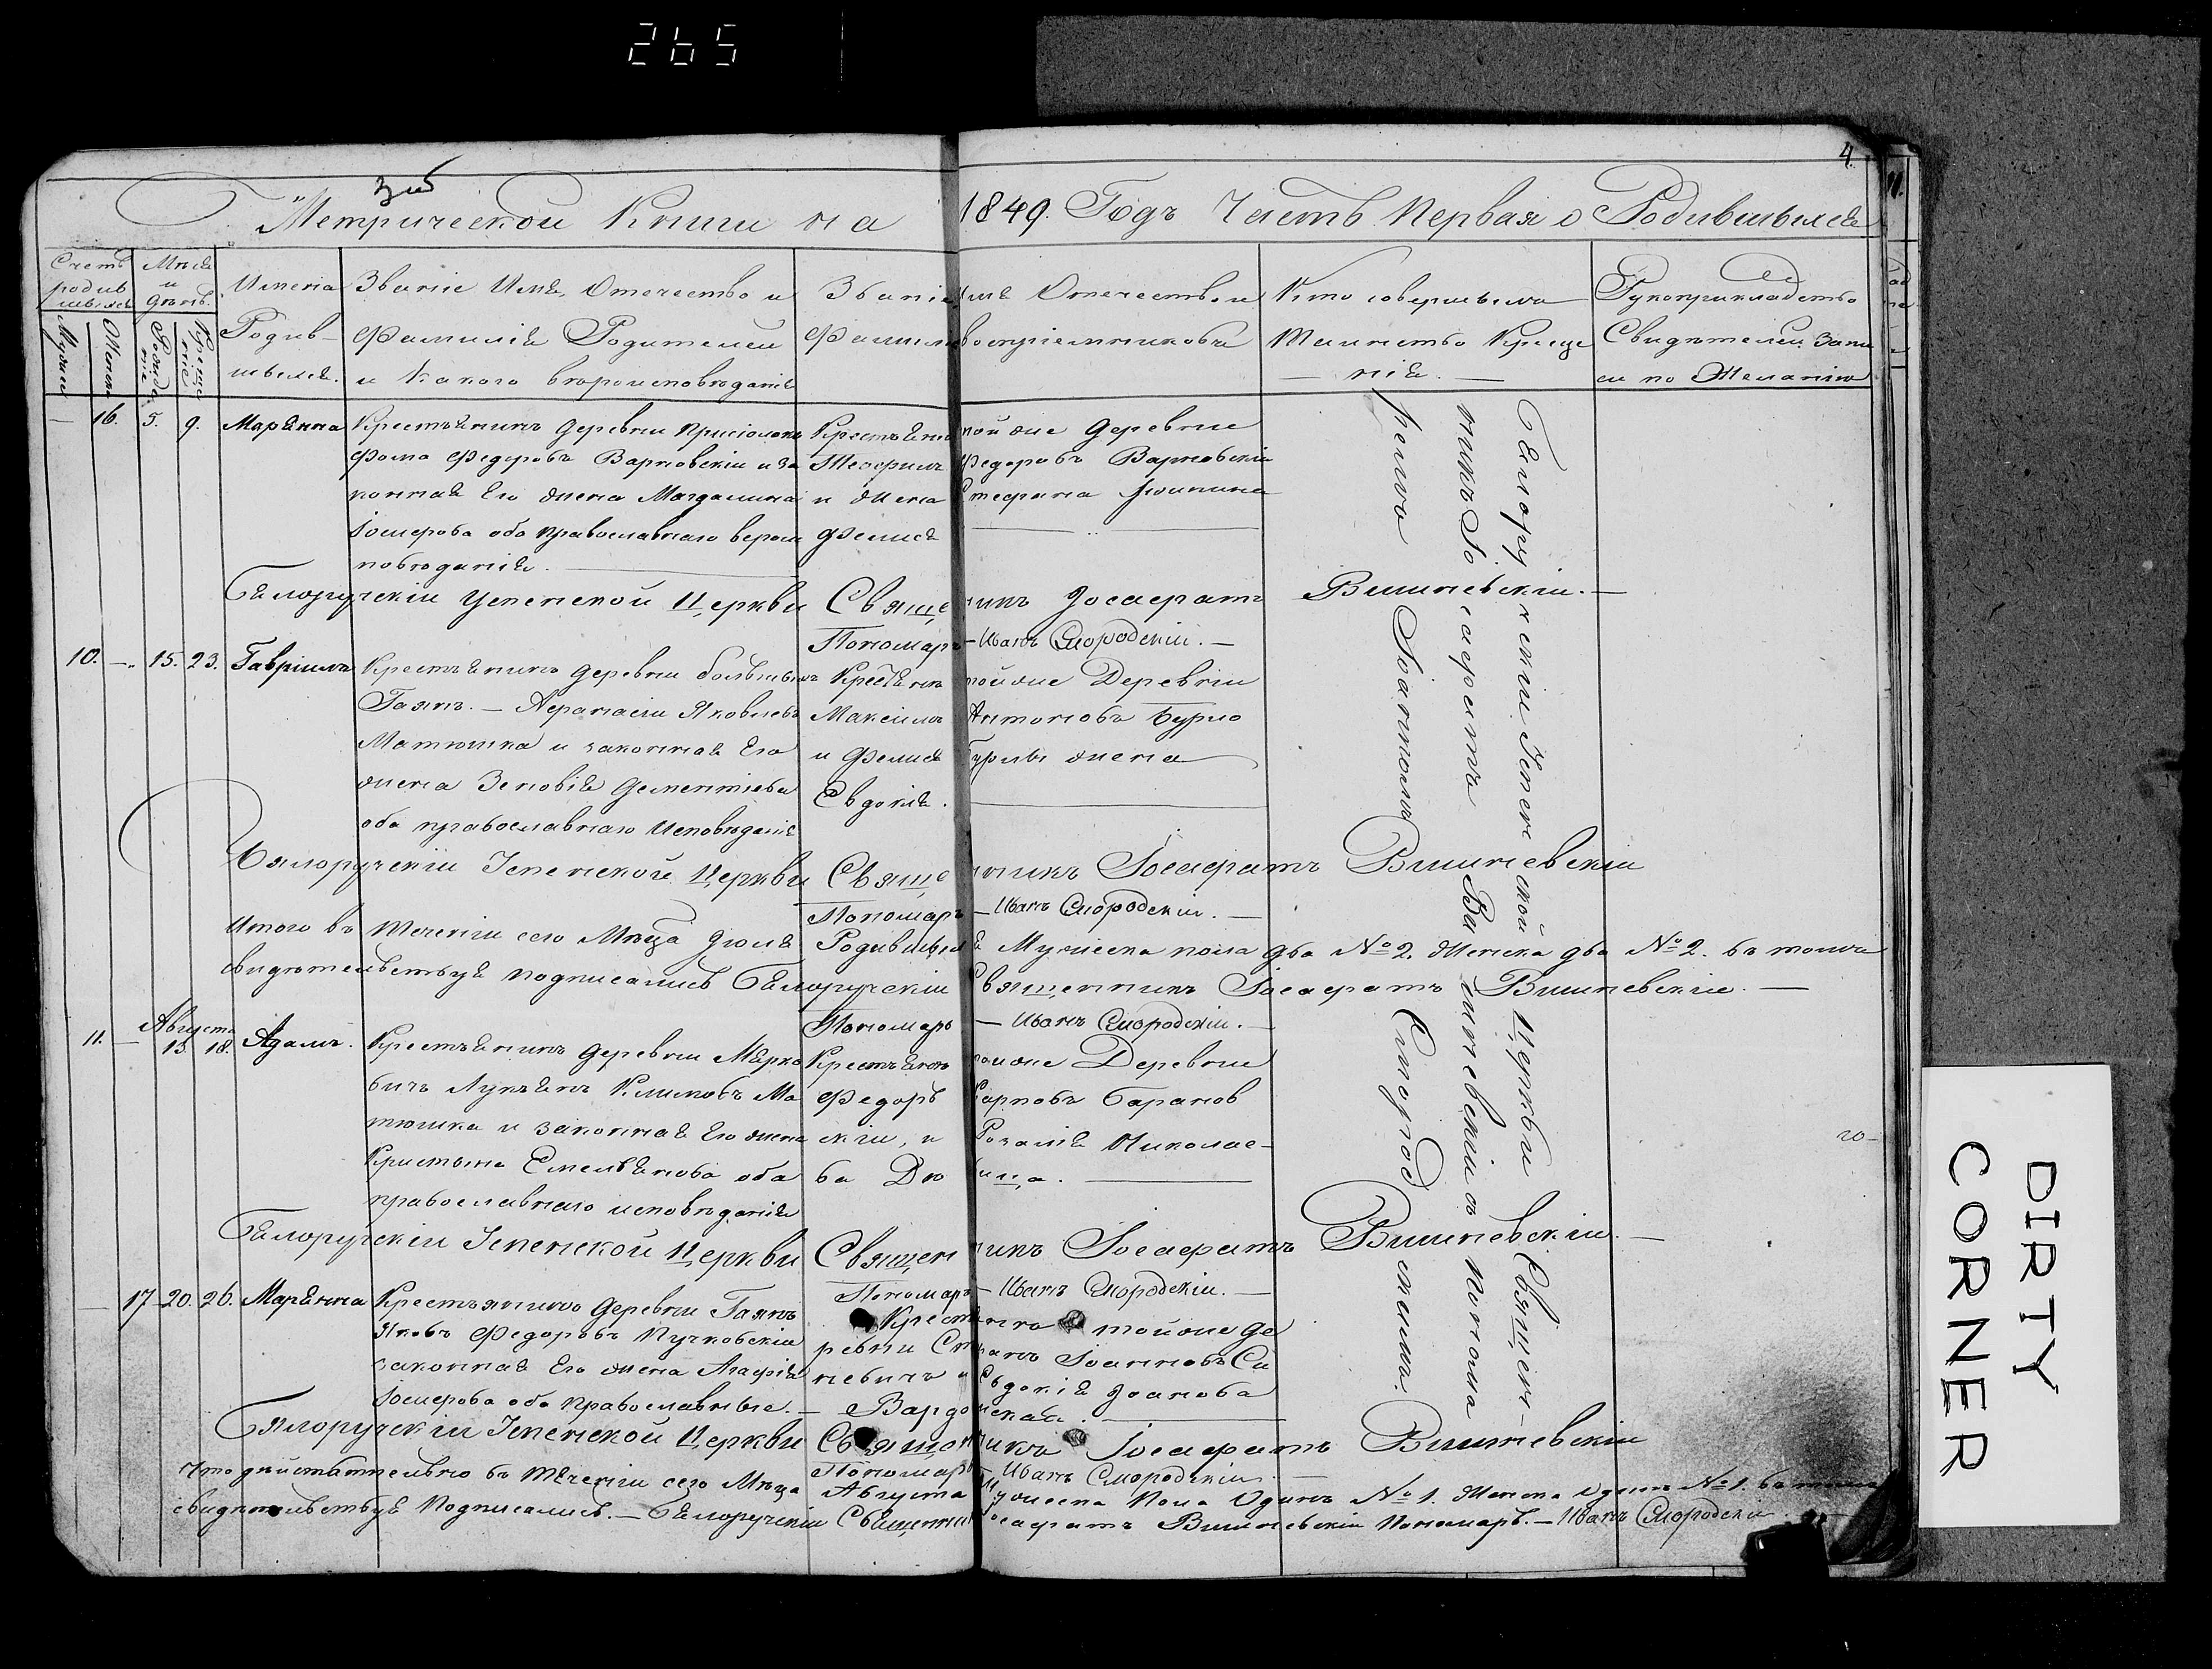 265
4.
Метрической Книги на 1849. Годъ Часть Первая о Родившыхся
Счетъ родившыхся
Мужеска
Женска
Мѣсяц и дни
Рожденія
Крещенія
Имена Родившыхся.
Званіе Имя, Отечество и
Фамилія Родителей
и Какого вѣроисповѣданія
Званіе Имя Отечество и
Фамилія восприемниковъ
Кто совершылъ
Таинство Креще
нія.
Рукоприкладство
Свидѣтелей Запи
си по Желанію
16. 5. 9. Марянна
Крестьянинъ деревни
Фома Федоровъ Варновскій и за
конная Его жена Магдалина
обо православнаго вероис
повѣданія.
Крестьяне той же деревни
Федоровъ Варновскій
и жена
Бѣлоручскій Успенской Церкви Священникъ Іосафатъ Вишневскій.
Пономаръ - Иванъ Смородскій.
10. 15. 23. Гавріилъ
Крестьянинъ деревни большыхъ
Гаянъ. Афанасій Яковлевъ
Матюшка и законная Его
жена Зеновія Дементіева
оба православнаго Исповѣданія
Крестьяне той же Деревни
Максимъ Антоновъ Бурло
жена
Евдокія.
Бялоручскій Успенской Церкви Священникъ Іосафатъ Вишневскій
Пономаръ - Иванъ Смородскій.
Итого въ Теченіи сего Мѣсца Іюля Родившыхся Мужеска пола два №2. Женска два №2. въ томъ
свидѣтельствуя подписались Бѣлоручскій Священникъ Іосафатъ Вишневскій.
Пономаръ - Иванъ Смородскій.
Августа
11. 13 18. Адамъ.
Крестьянинъ деревни Мярко
вичъ Лукьянъ Климовъ Ма
тюшка и законная Его жена
Кристына Емельянова оба
православнаго исповѣданія
Крестьяне той же Деревни
Федоръ Карповъ Баранов
скій, и Розалія Николае-
ва
Бѣлоручскій Успенской Церкви Священникъ Іосафатъ Вишневскій.
Пономаръ - Иванъ Смородскій.
17 20. 26. Марянна
Крестьянинъ деревни Гаянъ
Яковъ Федоровъ Кучковскій
законная Его жена Агафія
оба православные.
Крестьяне той же де
ревни Стефанъ Іоанновъ Си
невичъ и Евдокія Іоанова
Вардомская.
Бялоручскій Успенской Церкви Священникъ Іосафатъ Вишневскій
Пономаръ Иванъ Смородскій
Что дѣйствительно въ теченіи сего Мѣсца Августа Мужеска Пола Одинъ №1. Женска Одна №1. въ томъ
свидѣтельствуя Подписались. - Бѣлоручскій Священникъ Іосафатъ Вишневскій Пономаръ. - Иванъ Смородскій
Белоручскій Успенской Церкви Священ-
никъ Іосафатъ Вишневскій съ понома
ремъ Іоанномъ Смородскимъ.
DIRTY
CORNER